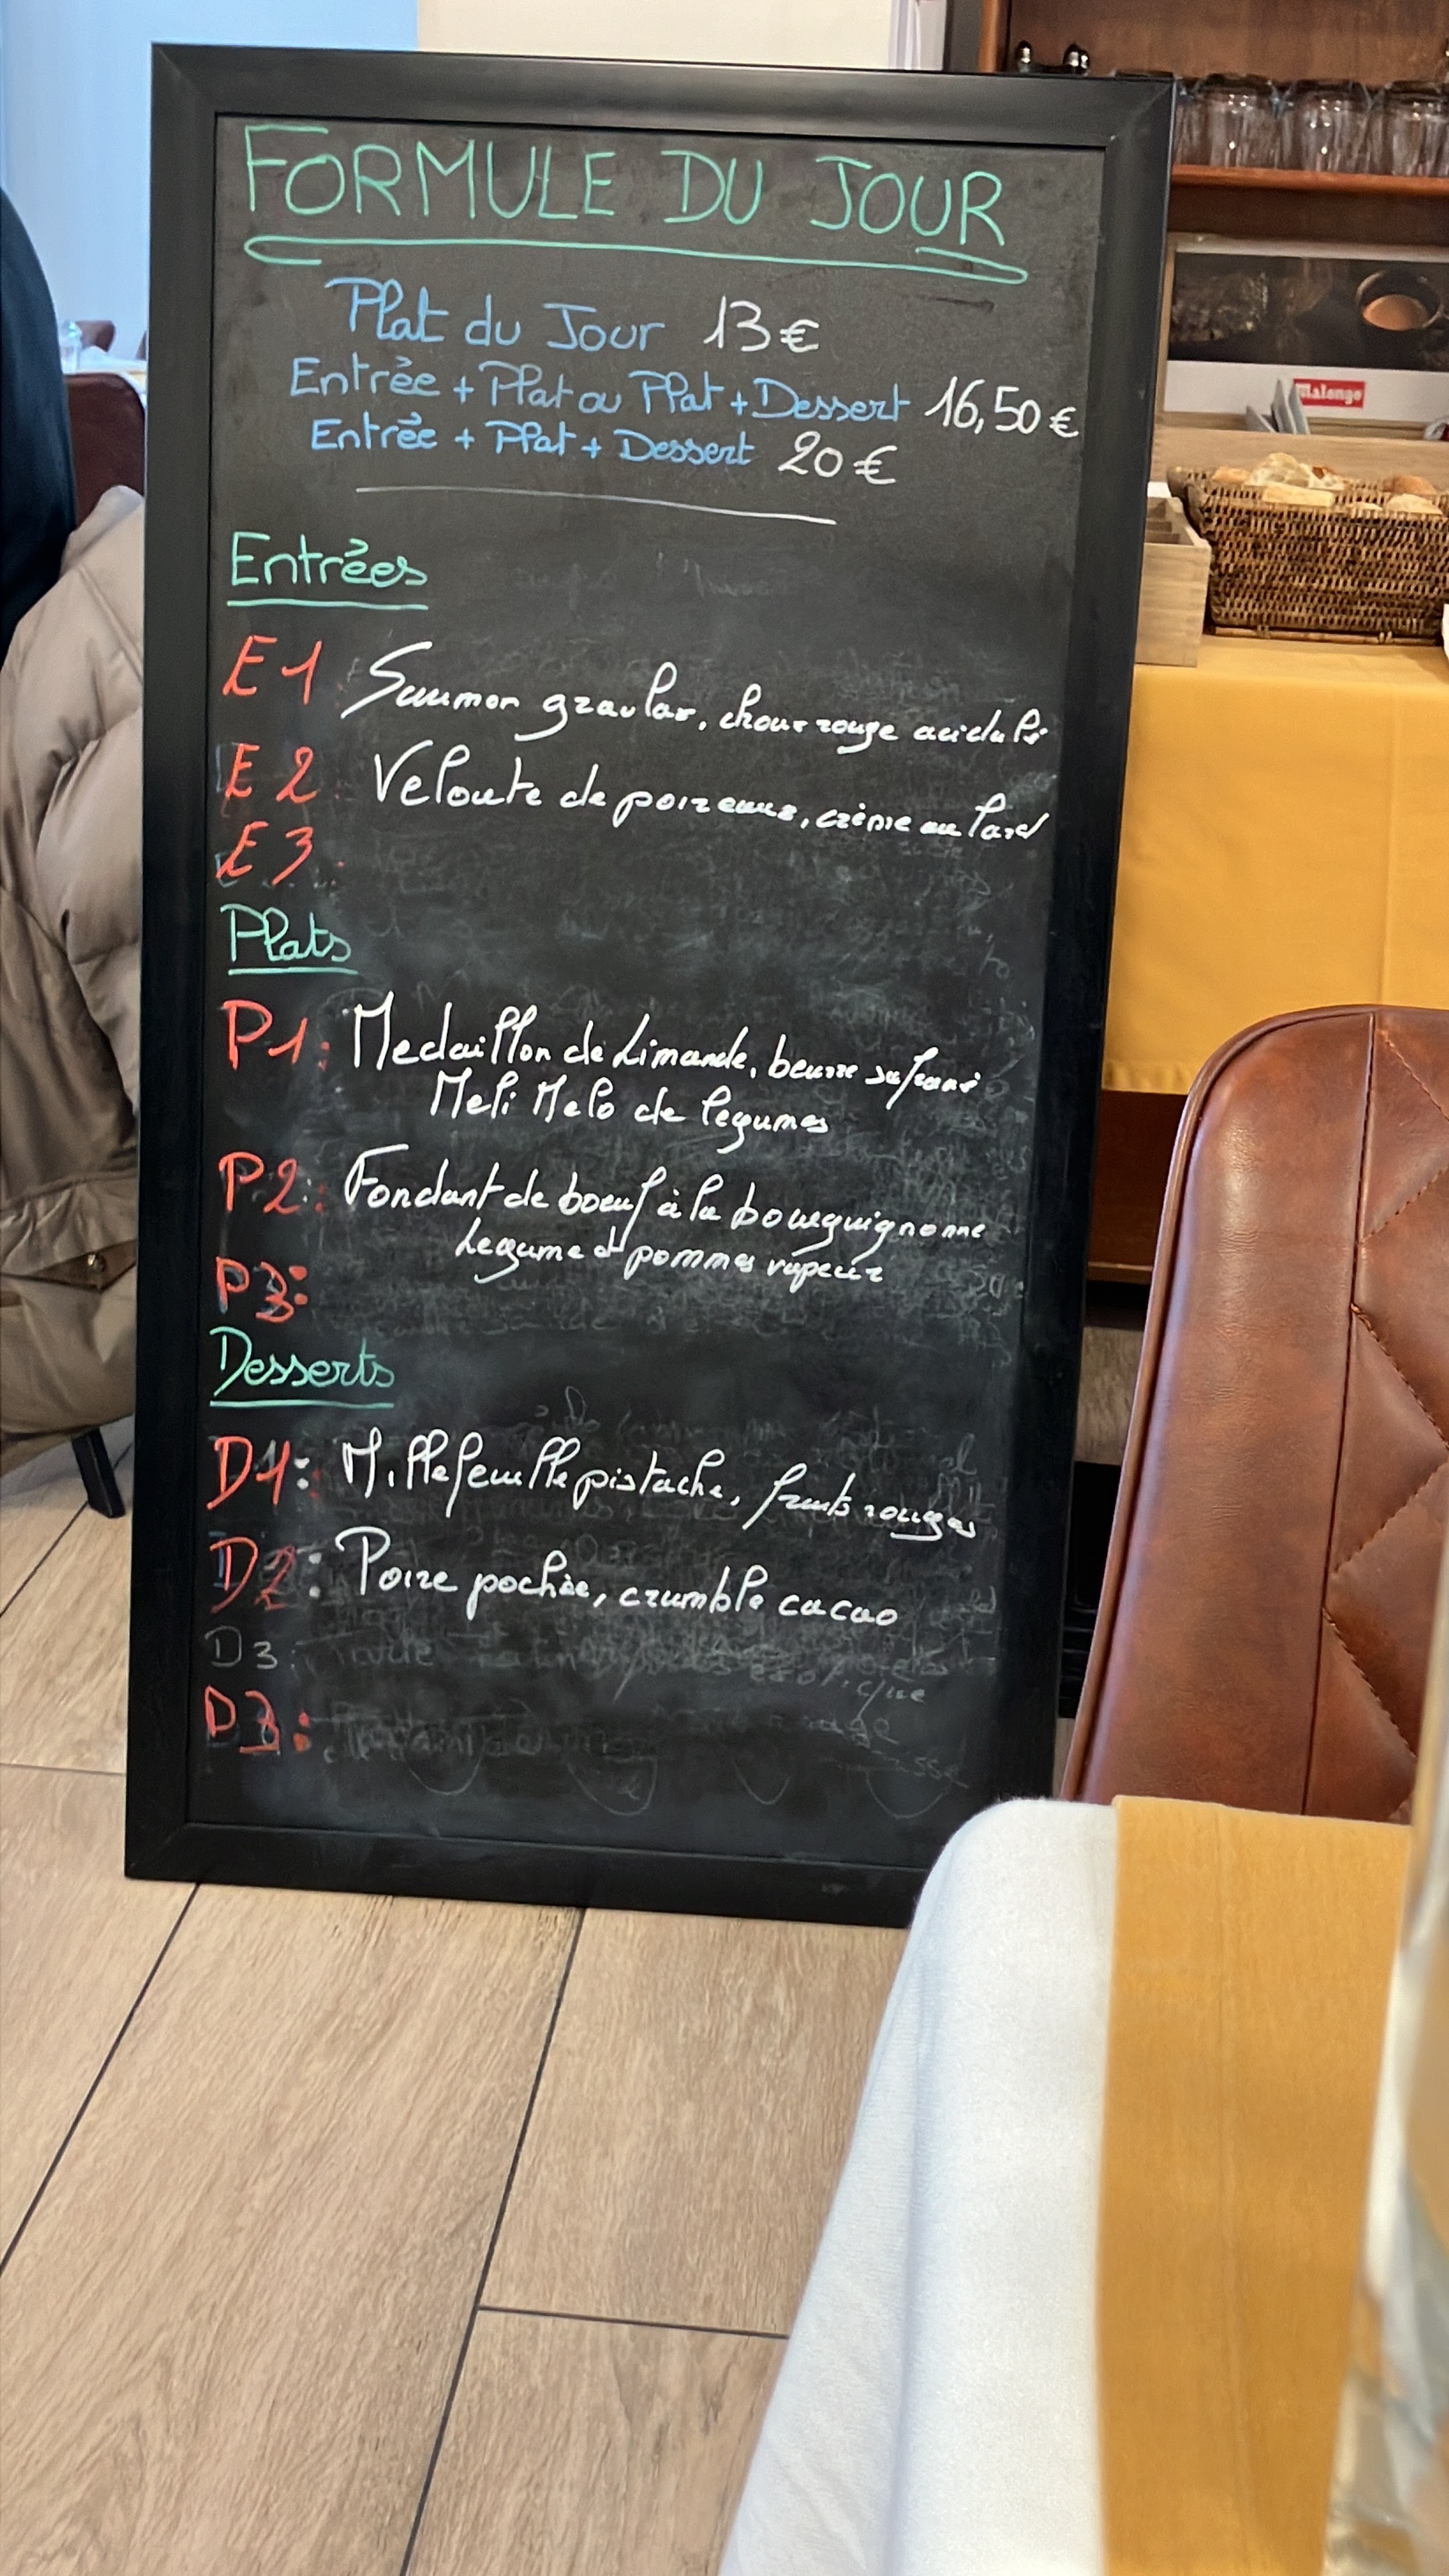 FORMULE DU JOUR
Plat du Jour 13€
Entrée + Plat ou Plat + Dessert 16,50€
Entrée + Plat + Dessert 20€
Entrées
E1 Saumon gravlax, choux rouge acidulé
E2 Veloute de poireaux, crème au lard
E3
Plats
P1: Medaillon de Limande, beurre safrané
Meli Melo de legumes
P2: Fondant de boeuf à la bourguignonne
Legume et pommes vapeur
P3:
Desserts
D1: Millefeuille pistache, fruits rouges
D2: Poire pochée, crumble cacao
D3: Tarte
D3:
Malongo